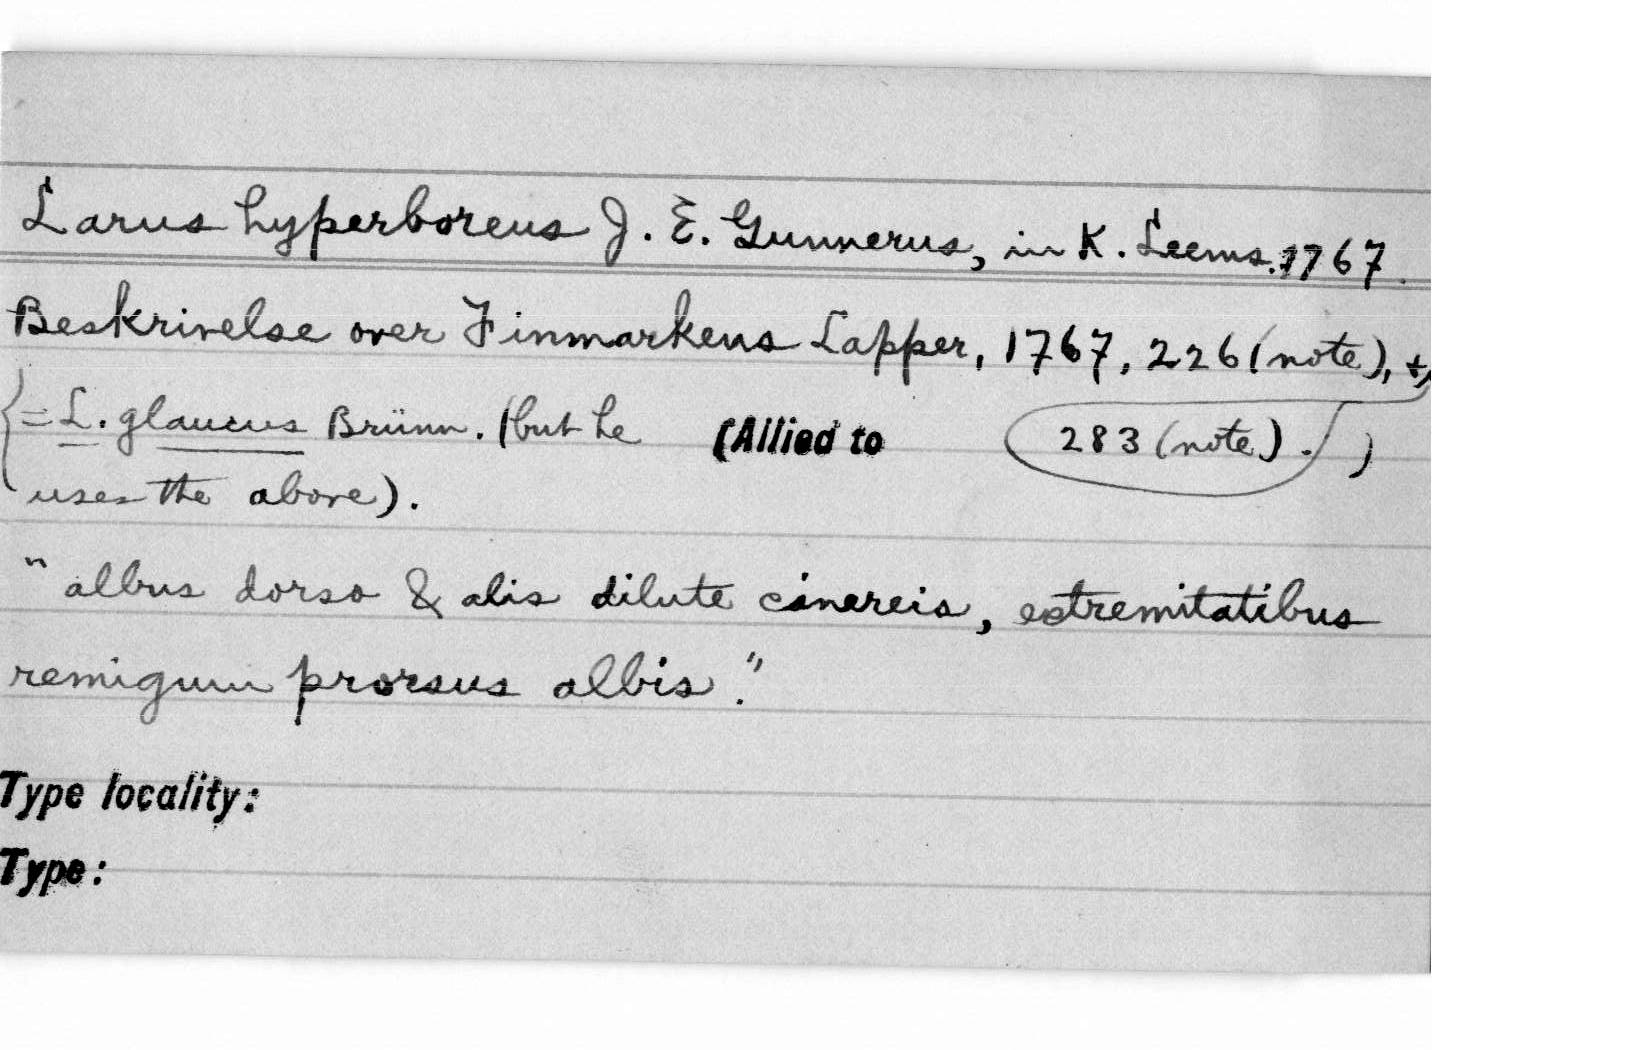 Larus hyperboreus J. E. Gunnerus, in K. Leems. 1767.
Beskrivelse over Finmarkens Lapper, 1767, 226 (note), +
{= L. glaucus Brünn. (but he (Allied to 283 (note). )
uses the above).
"albus dorso & alis dilute cinereis, extremitatibus
remigum prorsus albis."
Type locality:
Type: